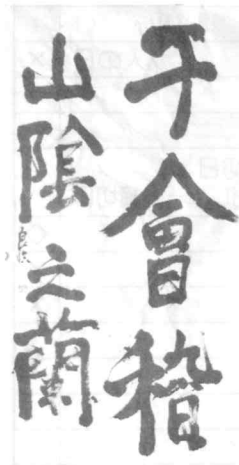 于會稽
山陰之蘭